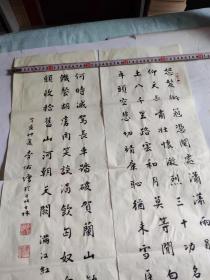 怒髮衝冠憑闌處瀟瀟雨
仰天長嘯壯懷激烈三十功名
土八千里路雲和月莫等閒白
年頭空悲切靖康恥猶未雪
何時滅駕長車踏破賀蘭山
餐胡虜肉笑談渴飲匈奴
頭收拾舊山河朝天闕 滿江紅
丁亥仲夏 李